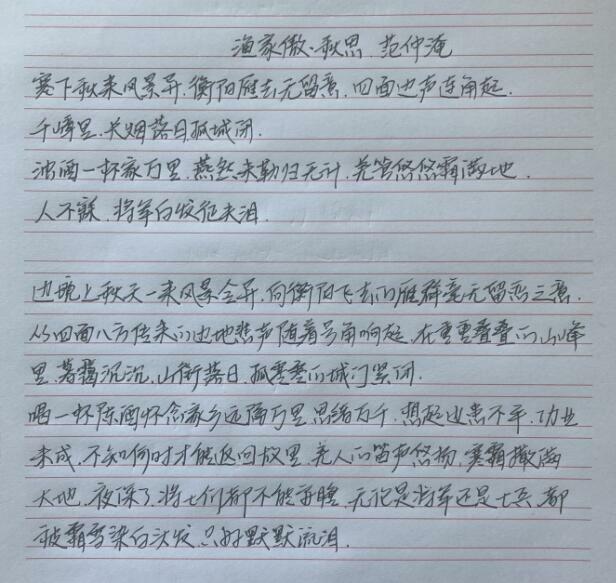 渔家傲·秋思 范仲淹
塞下秋来风景异,衡阳雁去无留意,四面边声连角起.
千嶂里,长烟落日孤城闭.
浊酒一杯家万里,燕然未勒归无计,羌管悠悠霜满地.
人不寐,将军白发征夫泪.
边境上秋天一来风景全异,向衡阳飞去的雁群毫无留恋之意.
从四面八方传来的边地悲声随着号角响起,在重重叠叠的山峰
里,暮霭沉沉,山衔落日,孤零零的城门紧闭.
喝一杯陈酒怀念家乡远隔万里,思绪万千,想起边患不平,功业
未成,不知何时才能返回故里,羌人的笛声悠扬,寒霜撒满
大地,夜深了,将士们都不能安睡,无论是将军还是士兵,都
被霜雪染白头发,只好默默流泪.